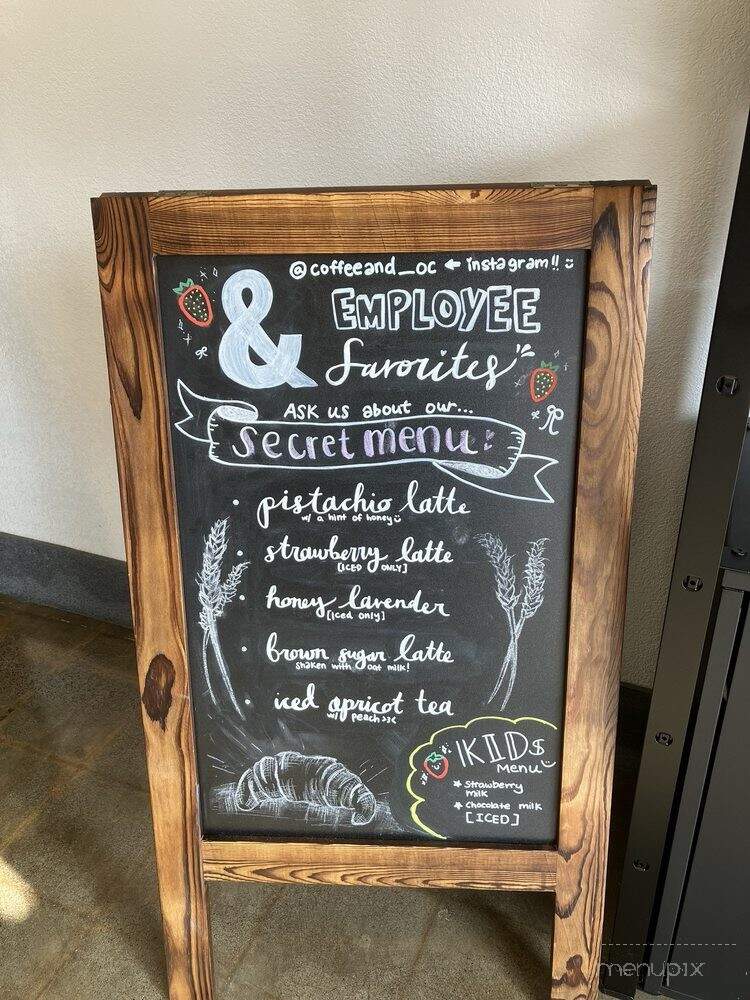 @coffeeand_oc ← instagram!!
&
EMPLOYEE
favorites
ASK us about our...
secret menu:
• pistachio latte
w/ a hint of honey
• strawberry latte
[ICED ONLY]
• honey lavender
[iced only]
• brown sugar latte
shaken with oat milk!
• iced apricot tea
w/ peach
KIDS
Menu
★ Strawberry
milk
★ Chocolate milk
[ICED]
menupix